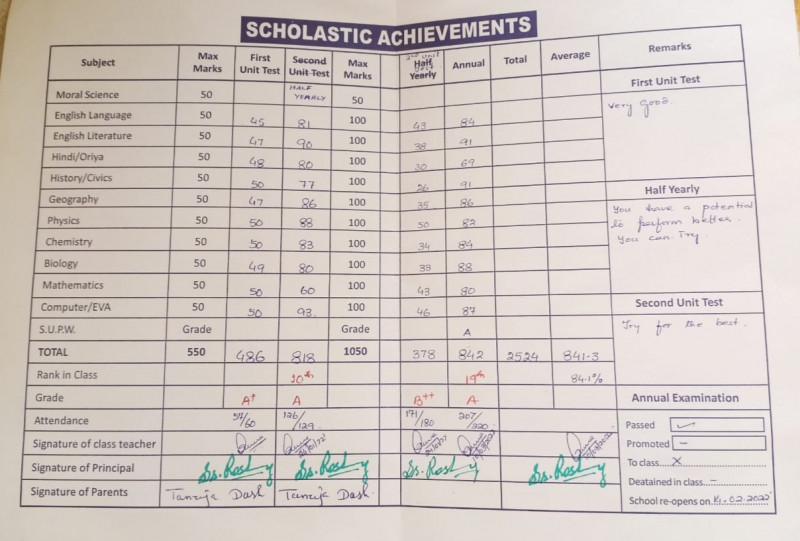 SCHOLASTIC ACHIEVEMENTS
Subject Max Marks First Unit Test Second Unit Test Max Marks 2nd Unit Test Half Yearly Annual Total Average Remarks
Moral Science 50 HALF YEARLY 50
English Language 50 45 81 100 43 84
English Literature 50 47 90 100 38 91
Hindi/Oriya 50 48 80 100 30 69
History/Civics 50 50 77 100 26 91
Geography 50 47 86 100 35 86
Physics 50 50 88 100 50 82
Chemistry 50 50 83 100 34 84
Biology 50 49 80 100 33 88
Mathematics 50 50 60 100 43 80
Computer/EVA 50 50 93 100 46 87
S.U.P.W. Grade Grade A
TOTAL 550 486 818 1050 378 842 2524 841.3
Rank in Class 10th 19th 84.1%
Grade A+ A B++ A
Attendance /60 126/129 171/180 207/220
Signature of class teacher
Signature of Principal Ss. Rosly Ss. Rosly Ss. Rosly Ss. Rosly
Signature of Parents Tanuja Dash Tanuja Dash
First Unit Test
Very Good.
Half Yearly
You have a potential
to perform better.
You can. Try.
Second Unit Test
Try for the best.
Annual Examination
Passed ✓
Promoted –
To class X
Deatained in class –
School re-opens on 02.2022